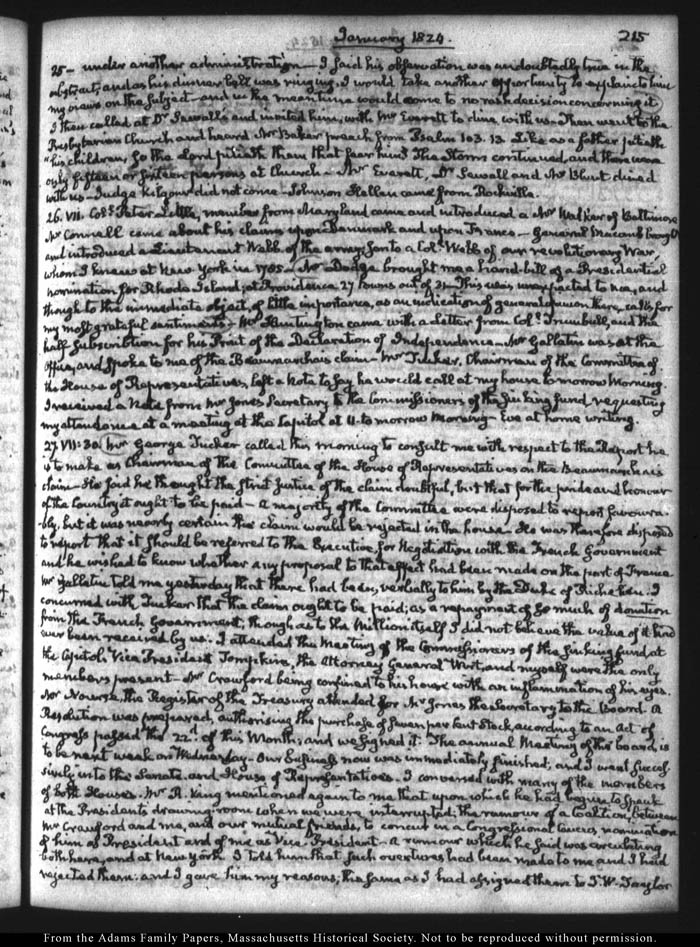 January 1824.
215
25 — under another administration — I said his observation was undoubtedly true in the
abstract, and as his dinner bell was ringing, I would take another opportunity to explain to him
my views on the subject — and in the mean time would come to no rash decision concerning it
I then called at Dr Sewall's and invited him, with Mr Everett to dine with us. Then went to the
Presbyterian Church and heard Mr Baker preach from Psalm 103. 13. Like as a father pitieth
"his children, So the Lord pitieth them that fear him" The Storm continued, and there were
only fifteen or sixteen persons at Church — Mr Everett, Dr Sewall and Mr Blunt dined
with us — Judge Kilgour did not come — Johnson Hellen came from Rockville.
26. VII. Coll. Peter Little, member from Maryland came and introduced a Mr Walker of Baltimore
Mr Connell came about his claims upon Denmark and upon France — General Macomb brought
and introduced a Lieutenant Webb of the army, Son to a Coll. Webb of our revolutionary War,
whom I knew at New York in 1785 — Mr Dodge brought me a hand-bill of a Presidential
nomination for Rhode Island, at Providence, 27 towns out of 31 — This was unexpected to me, and
though to the immediate object, of little importance, as an indication of general opinion there, calls for
my most grateful sentiments — Mr Huntington came with a letter from Coll. Trumbull, and the
half subscription for his Print of the Declaration of Independence — Mr Gallatin was at the
Office, and spoke to me of the Beaumarchais claim — Mr Tucker, Chairman of the Committee of
the House of Representatives, left a Note to say he would call at my house tomorrow Morning.
I received a Note from Mr Jones Secretary to the Commissioners of the Sinking fund requesting
my attendance at a meeting at the Capitol at 11 to morrow Morning — Eve at home writing.
27. VII: 30. Mr George Tucker called this morning to consult me with respect to the Report he
is to make as Chairman of the Committee of the House of Representatives on the Beaumarchais
claim — He said he thought the strict justice of the claim doubtful, but that for the pride and honour
of the Country it ought to be paid — a majority of the Committee were disposed to report favoura-
bly, but it was nearly certain the claim would be rejected in the house — He was therefore disposed
to report that it should be referred to the Executive, for Negotiation with the French Government
and he wished to know whether any proposal to that effect had been made on the part of France
Mr Gallatin told me yesterday that there had been, verbally to him by the Duke of Richelieu. I
concurred with Tucker that the claim ought to be paid; as a repayment of so much of donation
from the French Government; though as to the Million itself I did not believe the value of it had
ever been received by us. I attended the Meeting of the Commissioners of the Sinking fund at
the Capitol. Vice President Tompkins, the Attorney General Wirt, and myself were the only
members present — Mr Crawford being confined to his house with an inflammation of his eyes.
Mr Nourse, the Register of the Treasury attended for Mr Jones the Secretary to the Board. A
Resolution was prepared, authorising the purchase of seven per Cent Stock, according to an Act of
Congress passed the 22d of this Month; and we signed it. The annual Meeting of the board, is
to be next week on Wednesday — Our business now was immediately finished, and I went succes-
sively into the Senate and House of Representatives. I conversed with many of the members
of both Houses. Mr R. King mentioned again to me that upon which he had begun to speak
at the Presidents drawing-room when we were interrupted; the rumour of a coalition, between
Mr Crawford and me, and our mutual friends, to concur in a Congressional Caucus, nomination
of him as President and of me as Vice-President — a rumour which he said was circulating
both here, and at New York. I told him that Such overtures had been made to me and I had
rejected them: and I gave him my reasons; the same as I had assigned them to J. W. Taylor
From the Adams Family Papers, Massachusetts Historical Society. Not to be reproduced without permission.